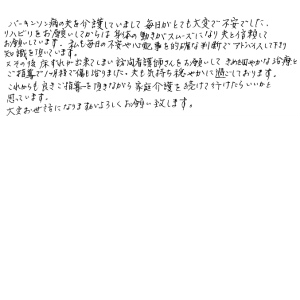 パーキンソン病の夫を介護していまして毎日がとても大変で不安でした。
リハビリをお願いしてからは身体の動きがスムーズになり夫も信頼して
お願いしています。私も毎日の不安や心配事を的確な判断でアドバイスして下さり
知識を頂いています。
又その後 床ずれが出来てしまい訪問看護師さんをお願いして きめ細やかな治療と
ご指導で1ヶ月程で傷も治りました。夫も気持ち穏やかに過ごしております。
これからも良きご指導を頂きながら家庭介護を続けて行けたらいいかと
思っています。
大変お世話になりますがよろしくお願い致します。